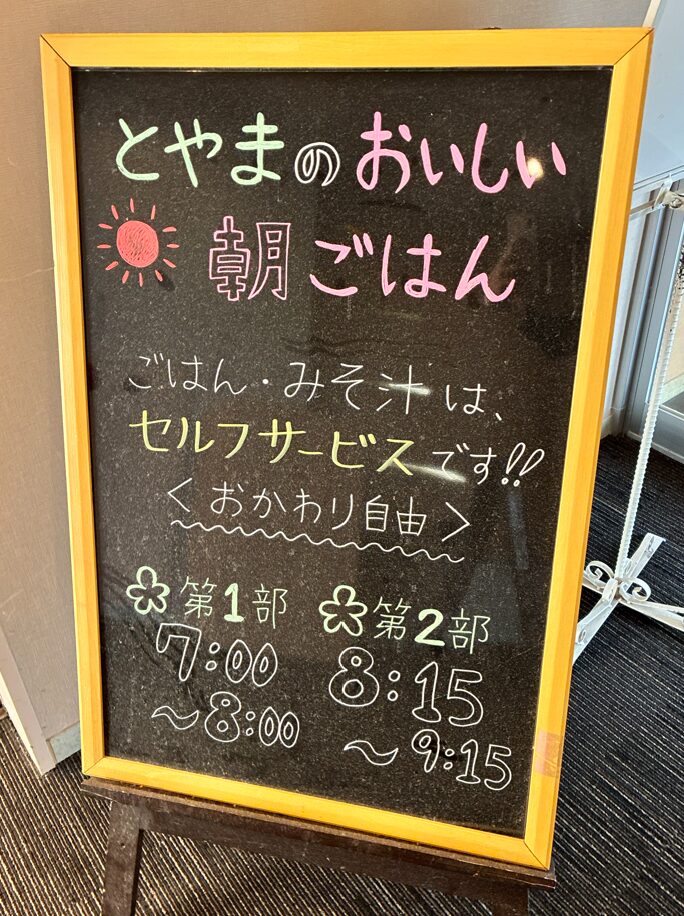 とやまのおいしい
朝ごはん
ごはん・みそ汁は、
セルフサービスです!!
<おかわり自由>
第1部
7:00
～8:00
第2部
8:15
～9:15